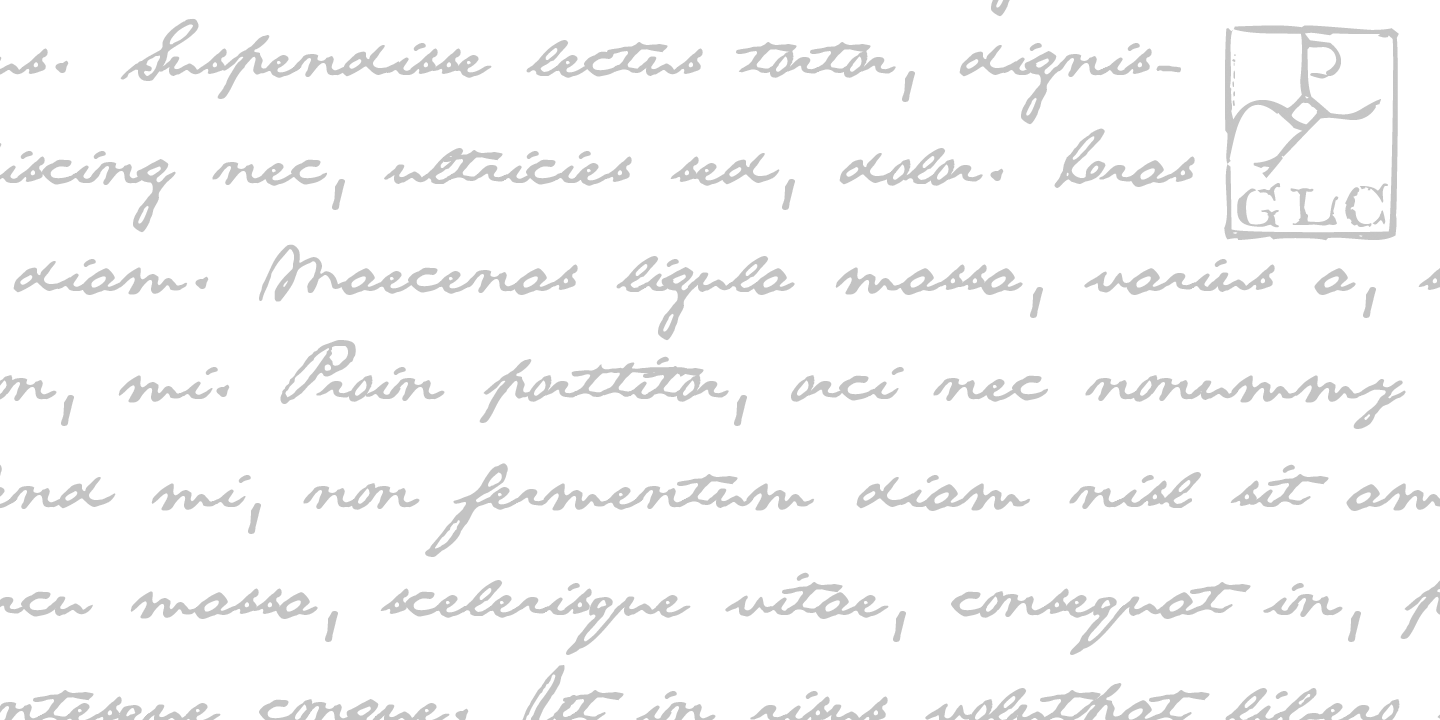 us. Suspendisse lectus tortor, dignis-
iscing nec, ultricies sed, dolor. Cras
diam. Maecenas ligula massa, varius a, s
on, mi. Proin porttitor, orci nec nonummy
end mi, non fermentum diam nisl sit am
rcu massa, scelerisque vitae, consequat in, p
ntesque congue. Ut in risus volutpat libero
GLC